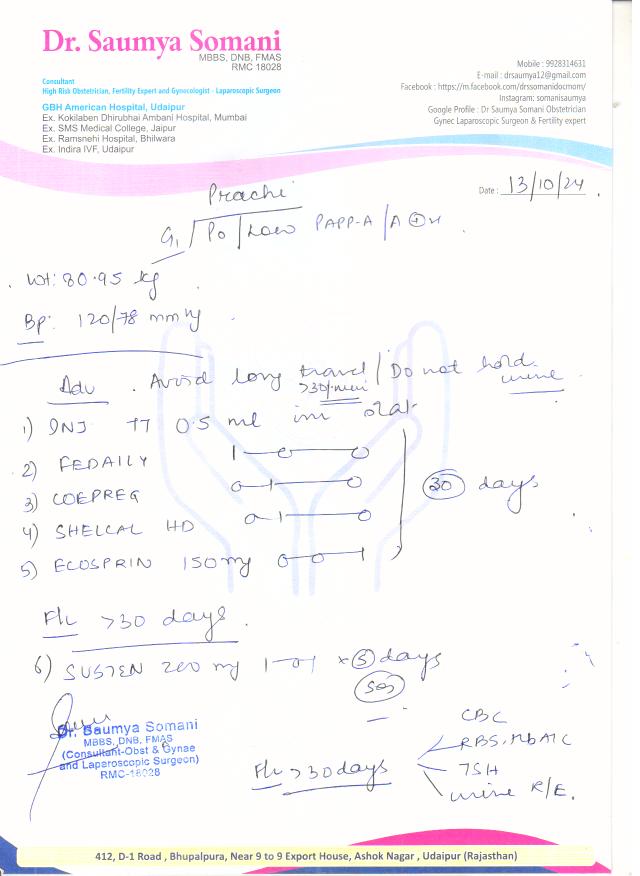 Dr. Saumya Somani
MBBS, DNB, FMAS
RMC 18028
Consultant
High Risk Obstetrician, Fertility Expert and Gynecologist - Laparoscopic Surgeon
GBH American Hospital, Udaipur
Ex. Kokilaben Dhirubhai Ambani Hospital, Mumbai
Ex. SMS Medical College, Jaipur
Ex. Ramsnehi Hospital, Bhilwara
Ex. Indira IVF, Udaipur
Mobile : 9928314631
E-mail : drsaumya12@gmail.com
Facebook : https://m.facebook.com/drssomanidocmom/
Instagram: somanisaumya
Google Profile : Dr Saumya Somani Obstetrician
Gynec Laparoscopic Surgeon & Fertility expert
Date : 13/10/24
Prachi
G1 P0 / Low PAPP-A / A ⊕
Wt: 80.95 kg
Bp: 120/78 mmHg
Adv . Avoid long travel / Do not hold urine
>30 min
1) INJ TT 0.5 ml im stat
2) FEDAILY 1—0—0
3) COEPREG 0—1—0
4) SHELCAL HD 0—1—0
5) ECOSPRIN 150mg 0—0—1
30 days
F/u >30 days.
6) SUSTEN 200 mg 1—0—1 x 5 days
SOS
Dr. Saumya Somani
MBBS, DNB, FMAS
(Consultant-Obst & Gynae
and Laparoscopic Surgeon)
RMC-18028
F/u >30 days
CBC
RBS, HbA1C
TSH
Urine R/E.
412, D-1 Road , Bhupalpura, Near 9 to 9 Export House, Ashok Nagar , Udaipur (Rajasthan)